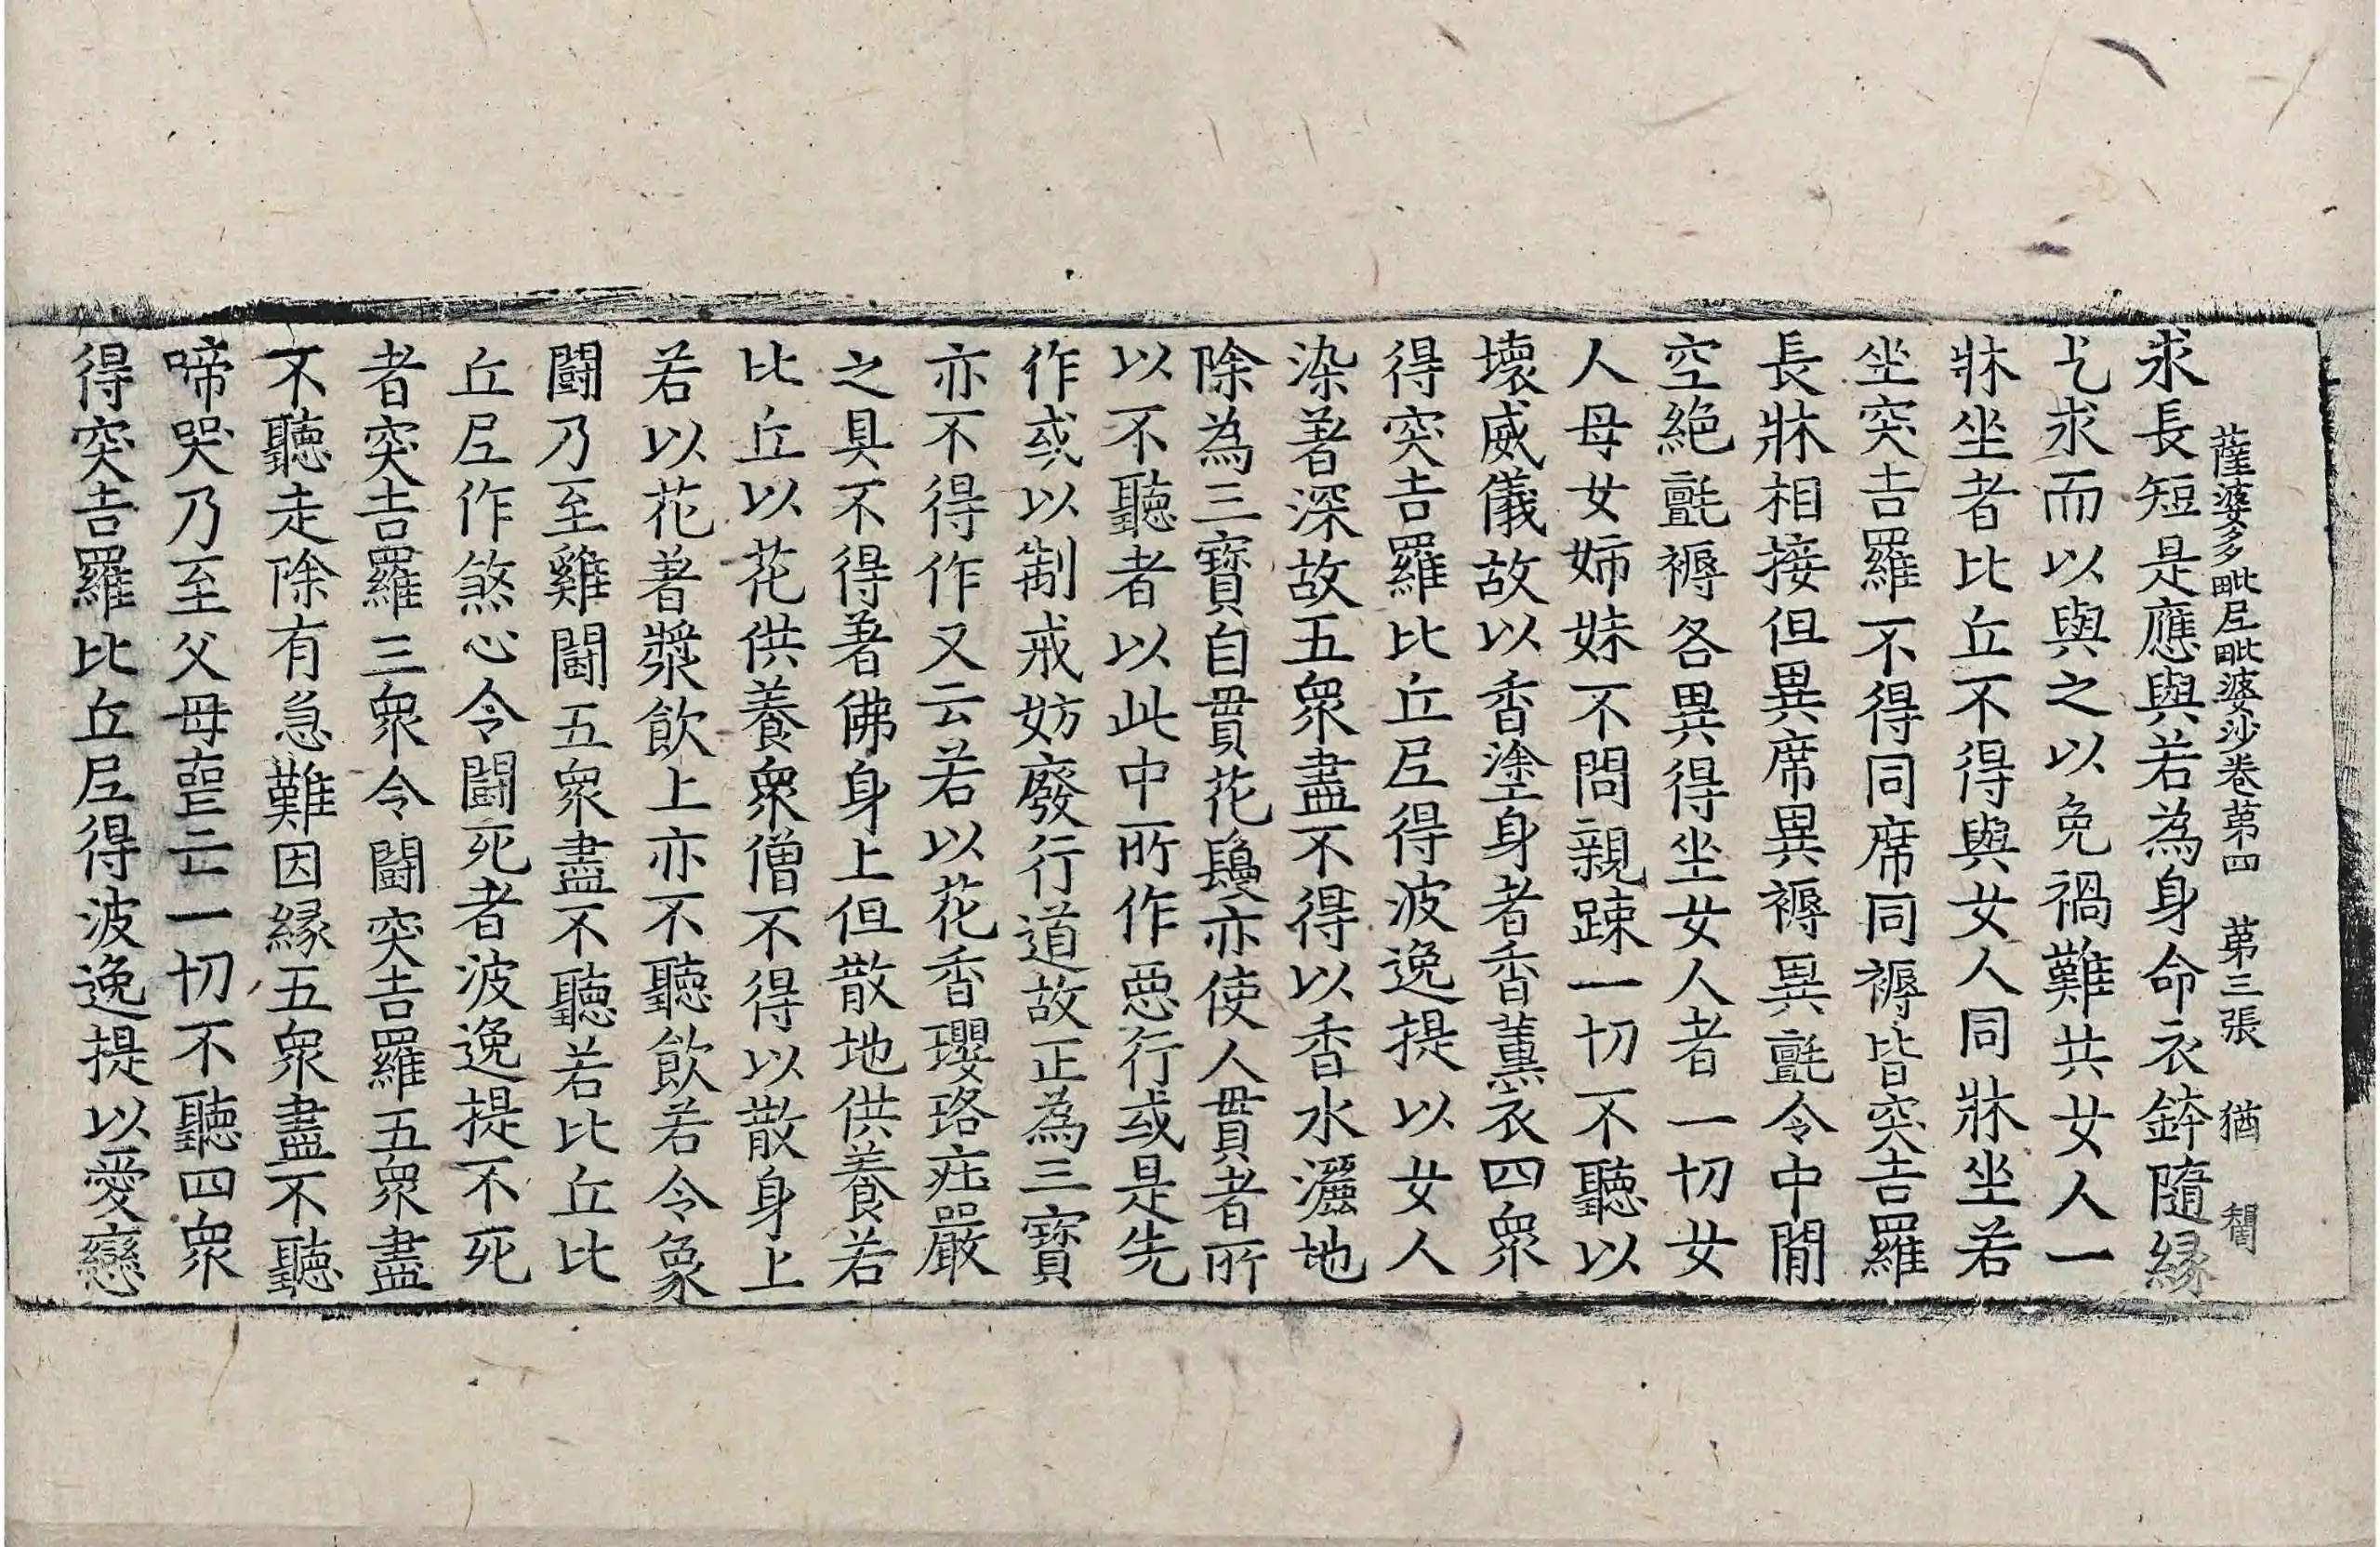 薩婆多毗尼毗婆沙卷第四 第三張 猶
求長短是應與若為身命衣鉢隨緣
乞求而以與之以免禍難共女人一
牀坐者比丘不得與女人同牀坐若
坐突吉羅不得同席同褥皆突吉羅
長牀相接但異席異褥異氈令中間
空絶氈褥各異得坐女人者一切女
人母女姉妹不問親踈一切不聽以
壞威儀故以香塗身者香薰衣四衆
得突吉羅比丘尼得波逸提以女人
染著深故五衆盡不得以香水灑地
除為三寶自貫花鬘亦使人貫者所
以不聽者以此中所作惡行或是先
作或以制戒妨廢行道故正為三寶
亦不得作又云若以花香瓔珞莊嚴
之具不得著佛身上但散地供養若
比丘以花供養衆僧不得以散身上
若以花著漿飲上亦不聽飲若令象
鬪乃至雞鬪五衆盡不聽若比丘比
丘尼作煞心令鬪死者波逸提不死
者突吉羅三衆令鬪突吉羅五衆盡
不聽走除有急難因緣五衆盡不聽
啼哭乃至父母喪亡一切不聽四衆
得突吉羅比丘尼得波逸提以愛戀